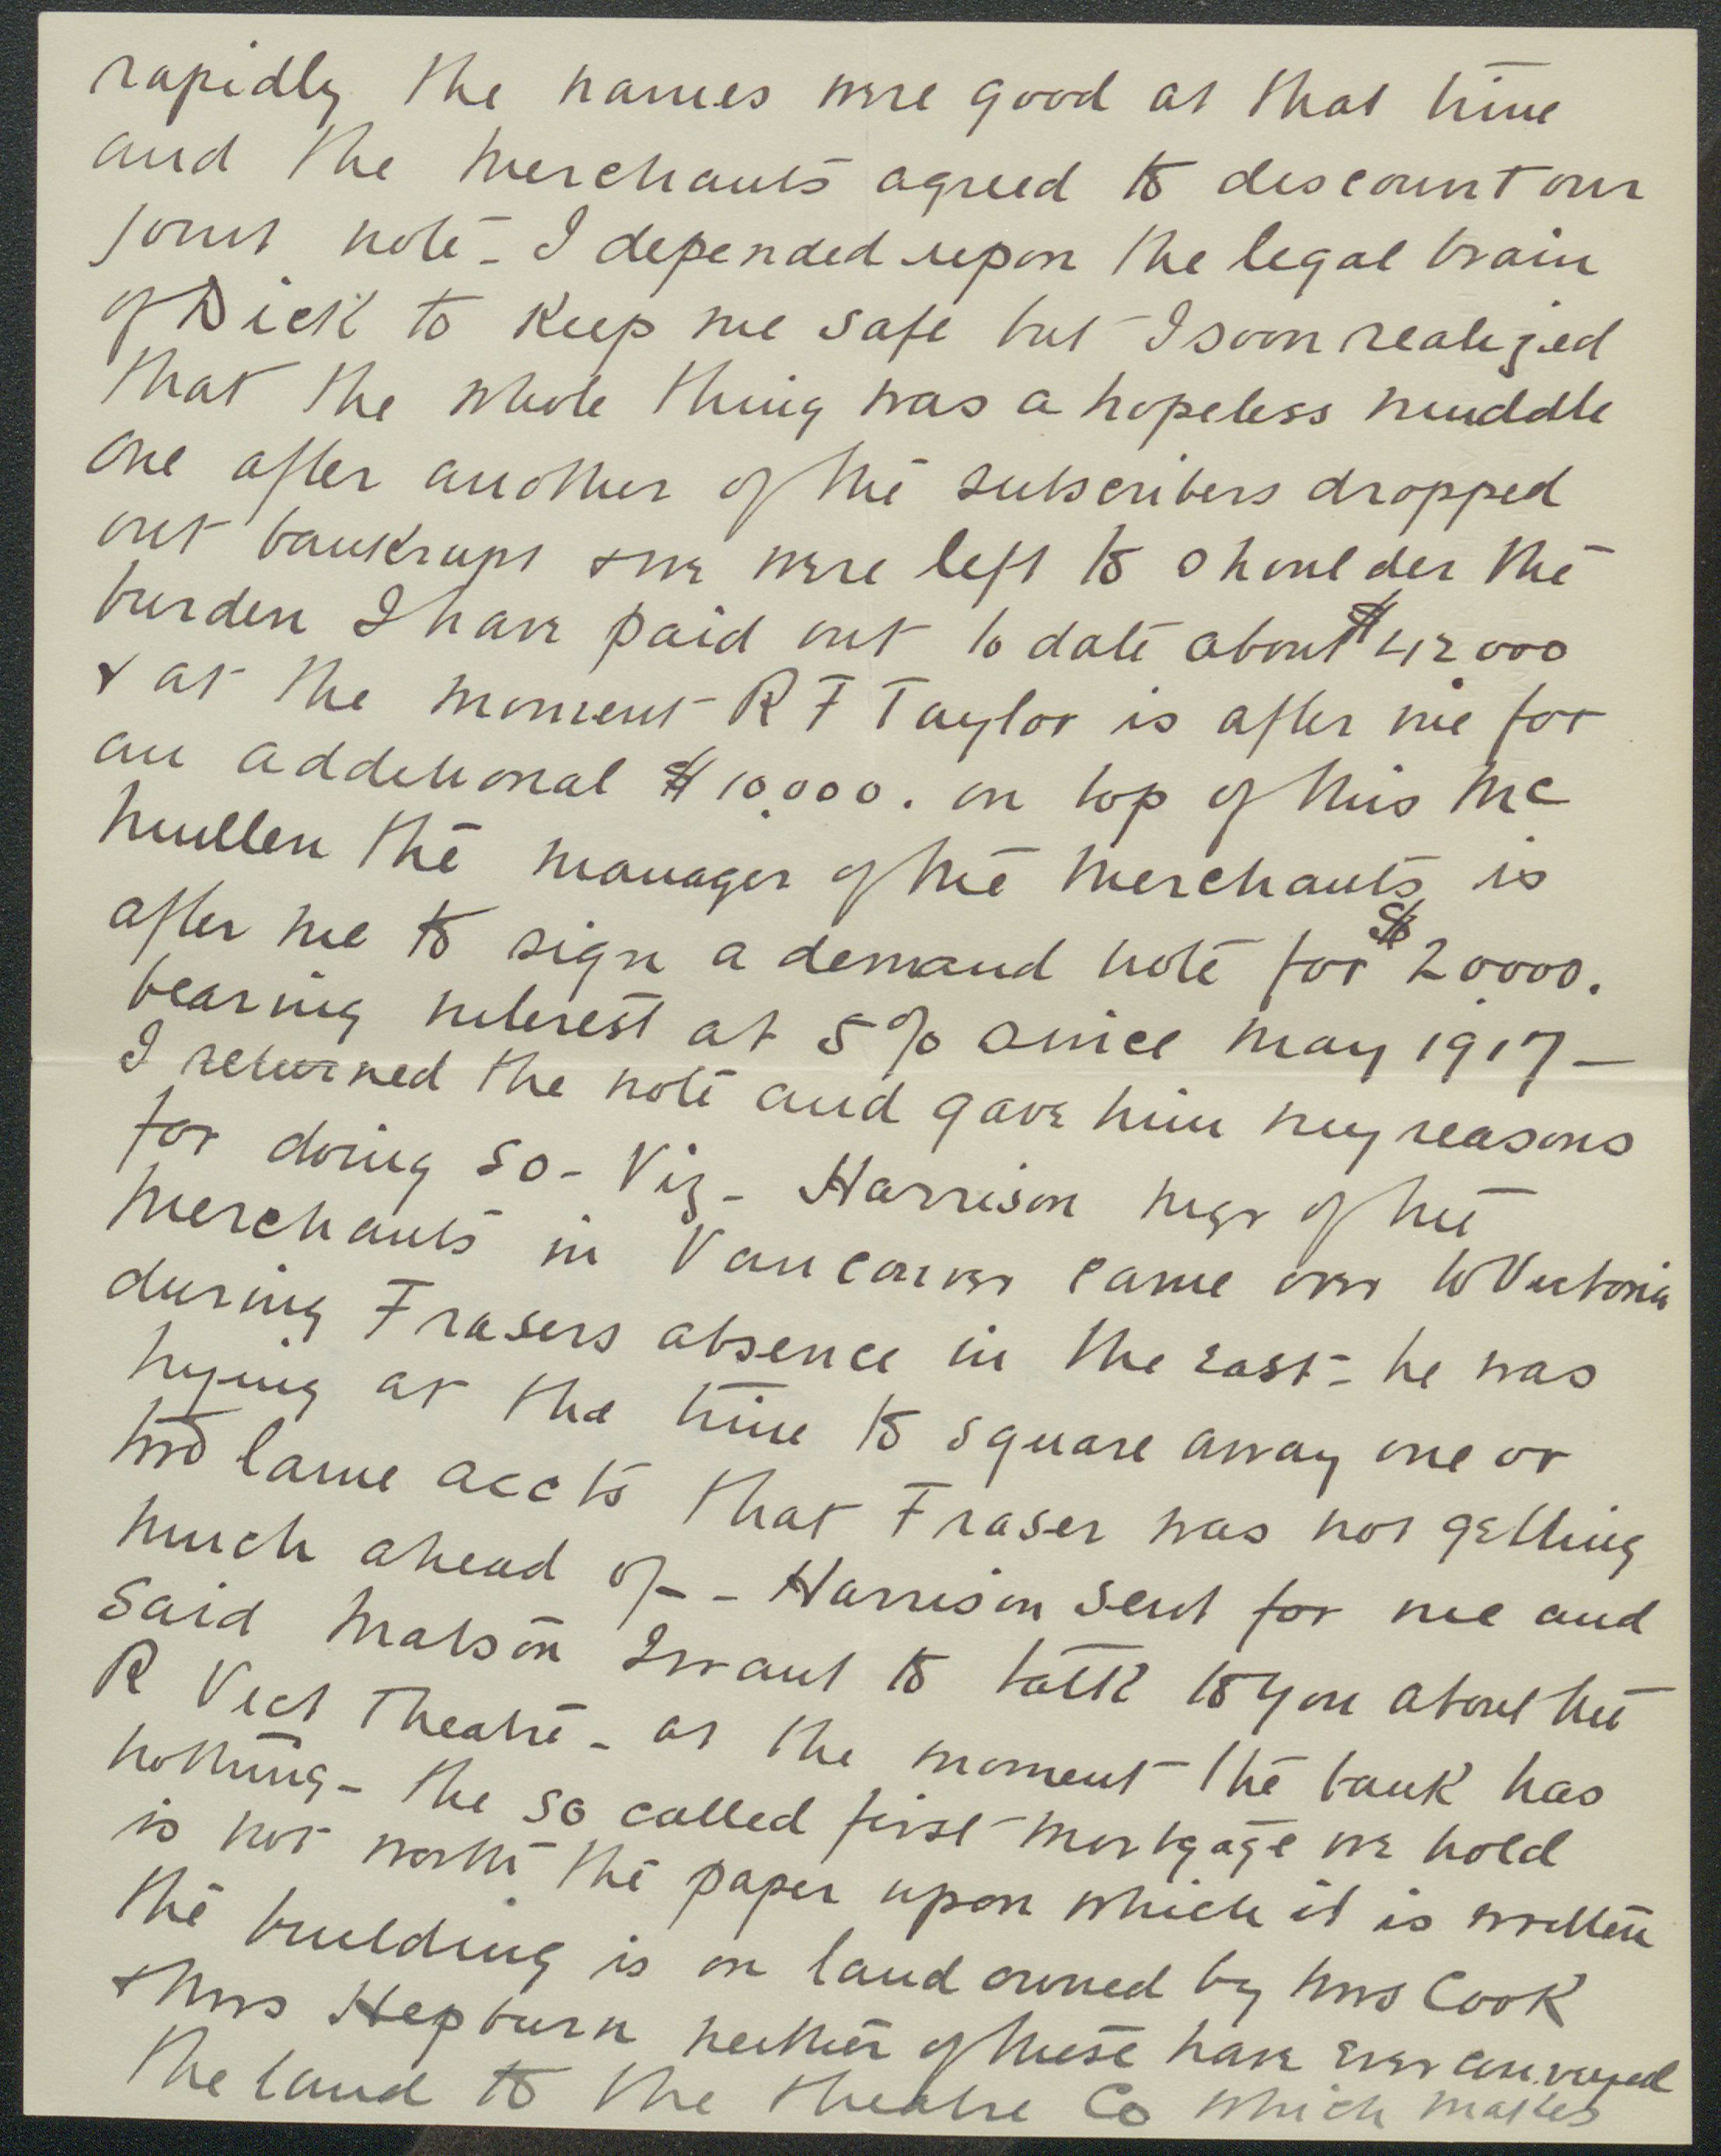 rapidly the names were good at that time
and the Merchants agreed to discount our
joint note - I depended upon the legal brain
of Dick to keep me safe but I soon realized
that the whole thing was a hopeless muddle
one after another of the subscribers dropped
out bankrupt & we were left to shoulder the
burden I have paid out to date about $42000
& at the moment R F Taylor is after me for
an additional $10,000. on top of this Mc
Mullen the manager of the Merchants is
after me to sign a demand note for $20,000.
bearing interest at 5% since May 1917 -
I returned the note and gave him my reasons
for doing so - Viz - Harrison mgr of the
Merchants in Vancouver came over to Victoria
during Frasers absence in the east - he was
trying at the time to square away one or
two lame accts that Fraser was not getting
much ahead of - - Harrison sent for me and
said Matson I want to talk to you about the
R Vict Theatre - at the moment the bank has
nothing - the so called first mortgage we hold
is not worth the paper upon which it is written
the building is on land owned by Mrs Cook
& Mrs Hepburn neither of these have ever conveyed
the land to the theatre Co which makes